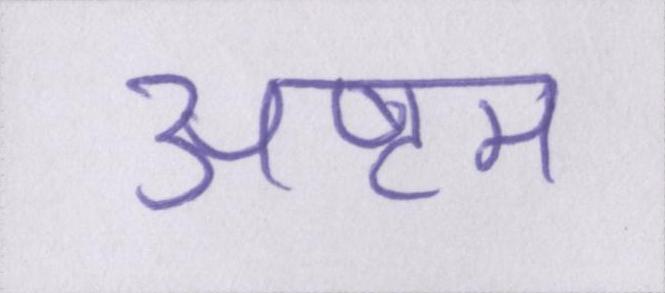 अष्टम